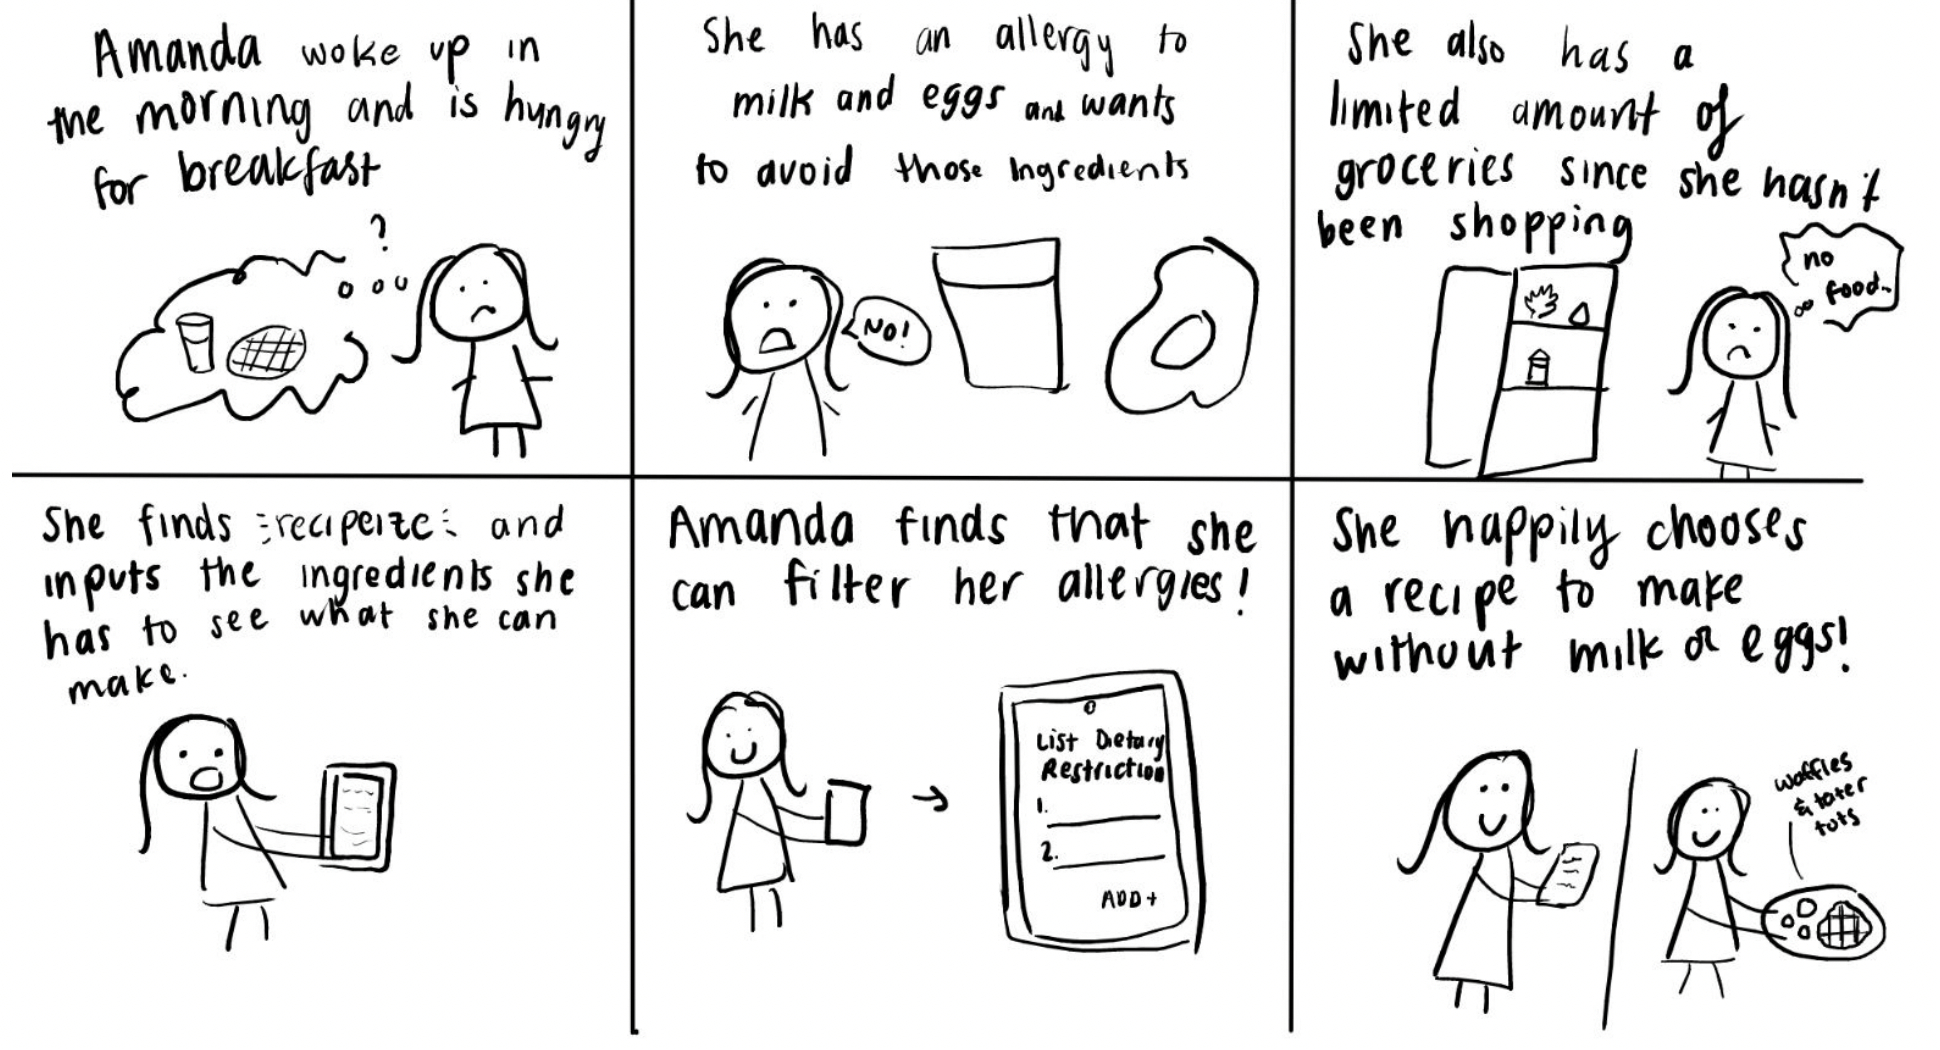 Amanda woke up in
the morning and is hungry
for breakfast
?
She has an allergy to
milk and eggs and wants
to avoid those ingredients
NO!
She also has a
limited amount of
groceries since she hasn't
been shopping
no
food..
She finds recipeize and
inputs the ingredients she
has to see what she can
make.
Amanda finds that she
can filter her allergies!
List Dietary
Restriction
1.
2.
ADD+
She happily chooses
a recipe to make
without milk or eggs!
waffles
& tater
tots